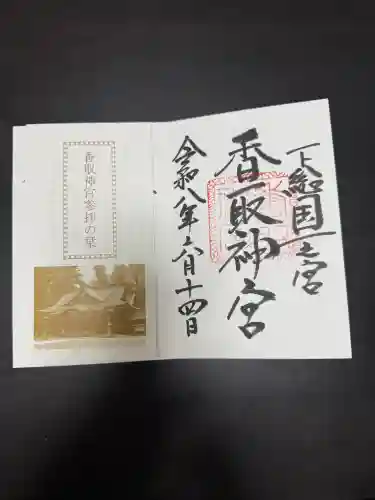 下総国一之宮
香取神宮
令和八年六月十四日
香取神宮参拝の栞